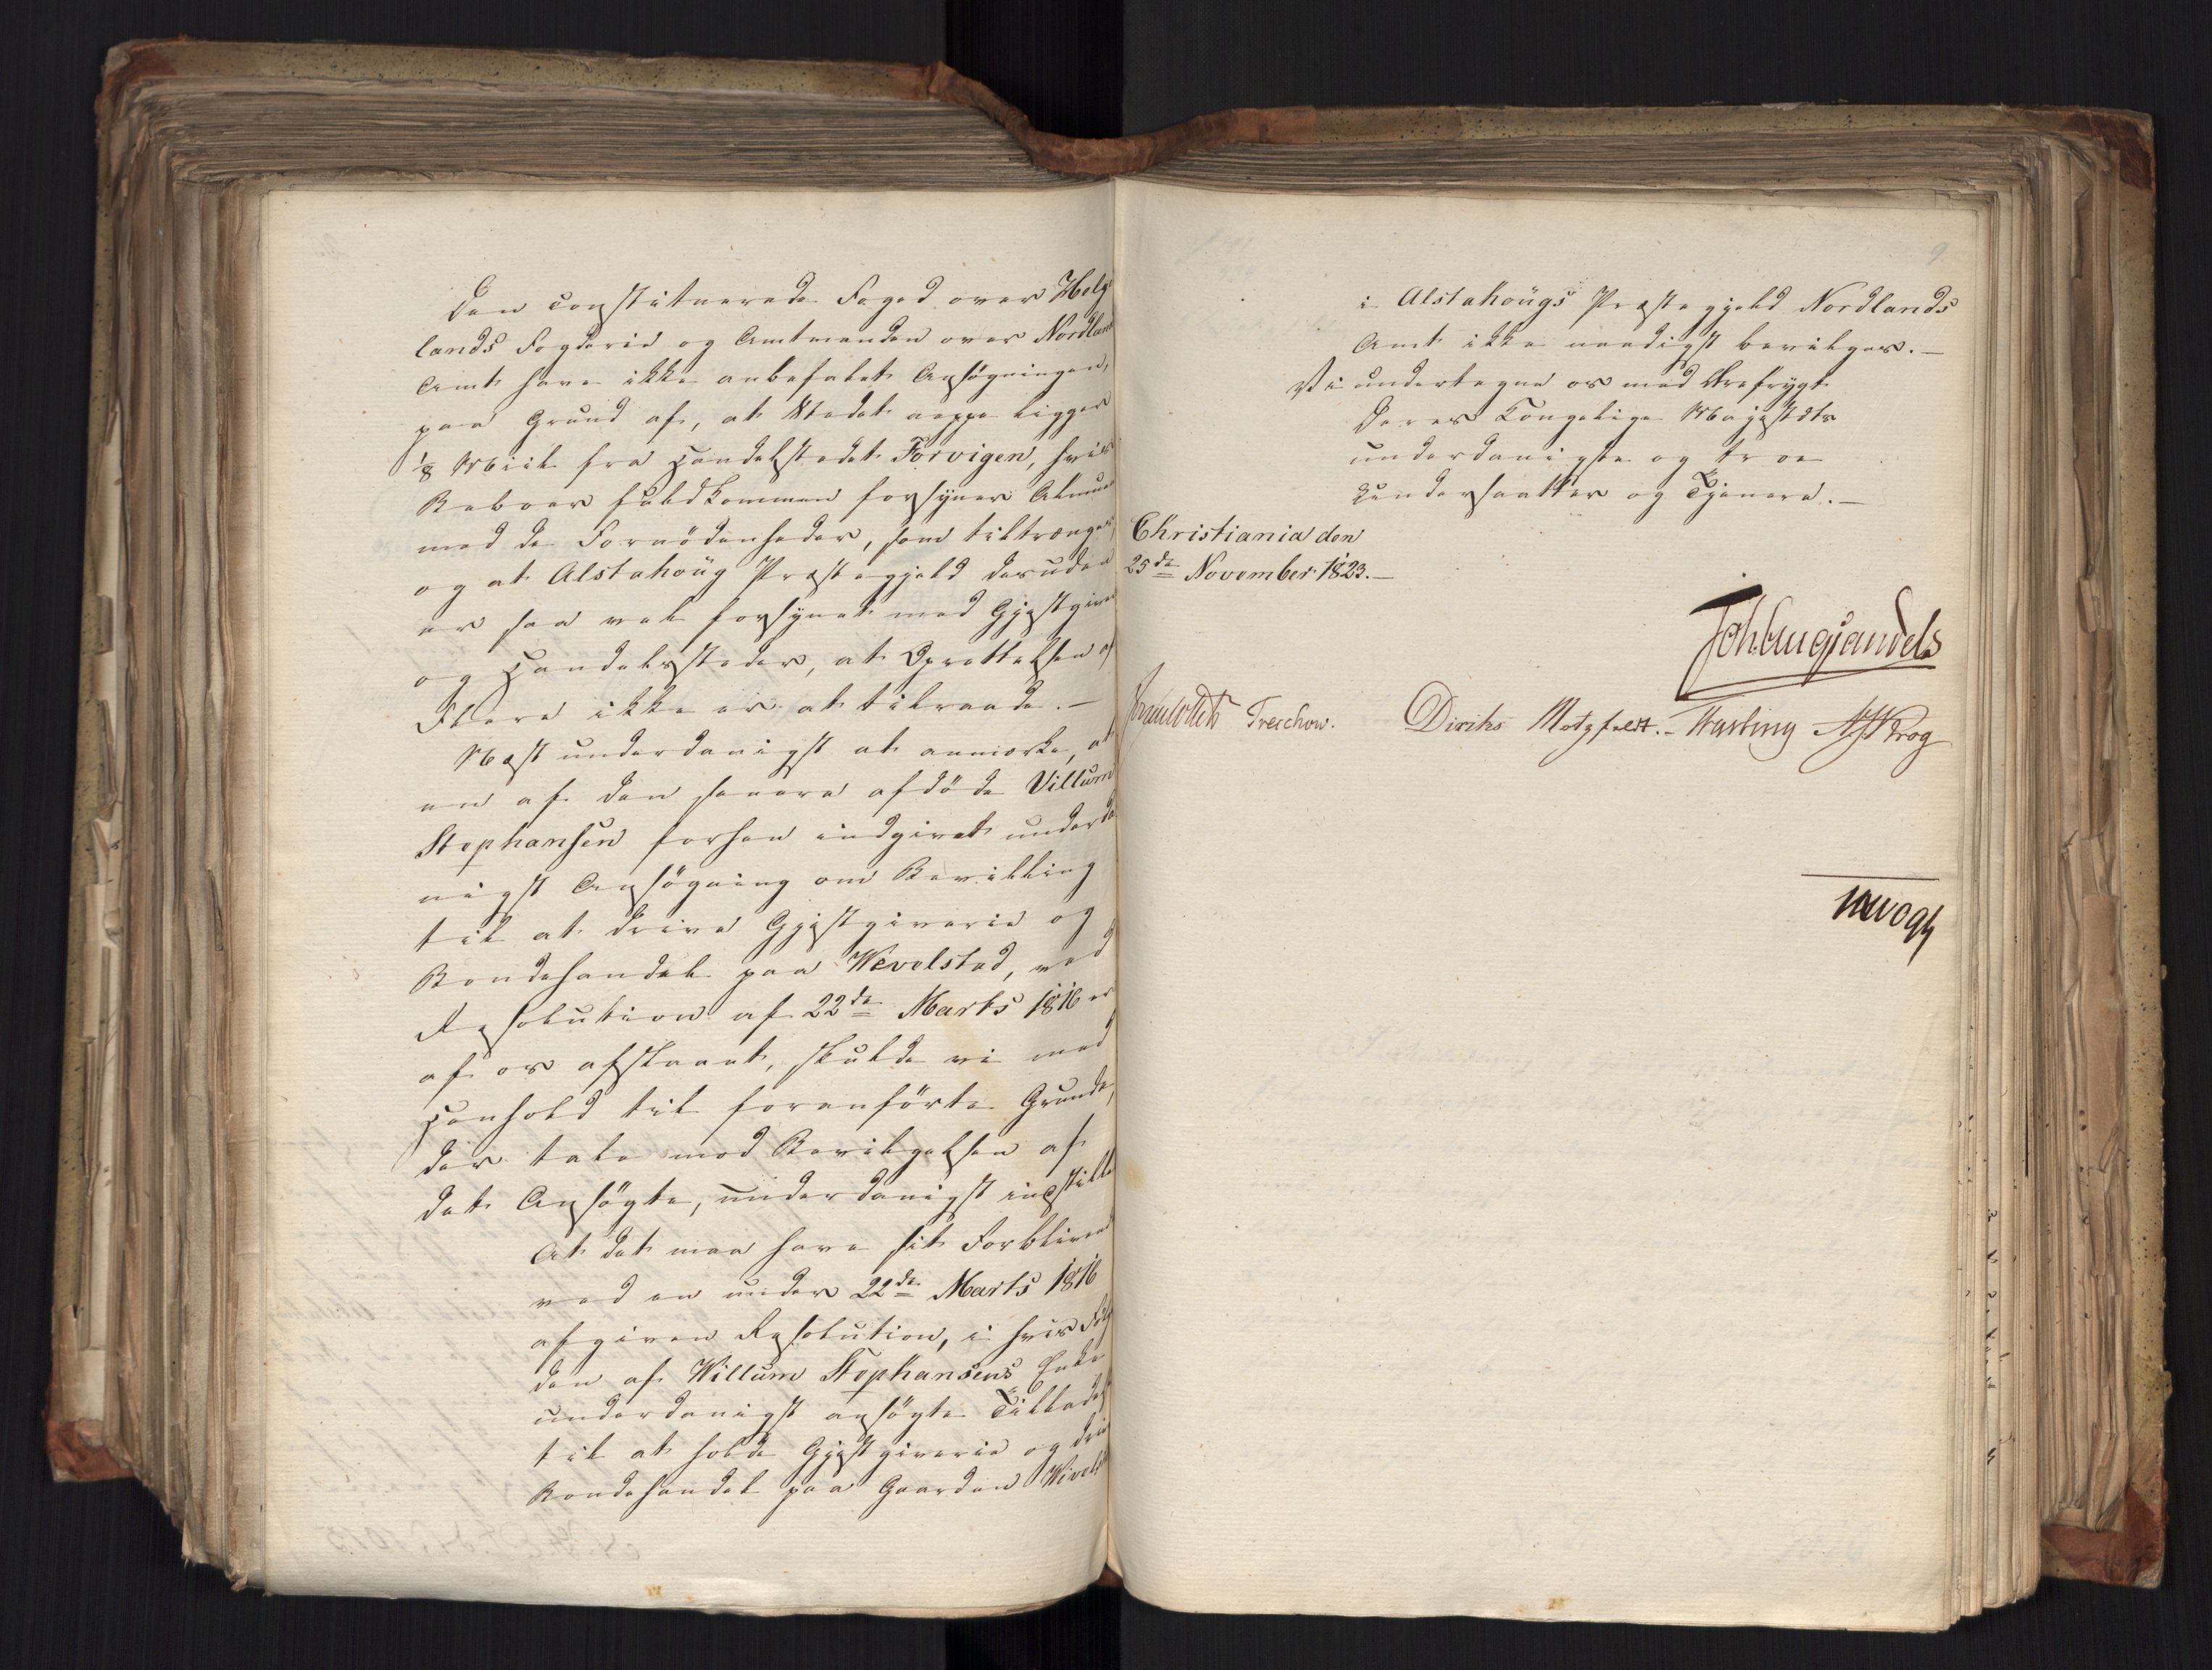 Den constituerede Foged over Helge
lands Fogderie og Amtmanden over Nordland
Amt have ikke anbefalet Ansøgningen,
paa Grund af, at Stedet neppe ligger
1/8 Miil fra Handelstedet Forvigen, hvis
Beboer fuldkommen forsyner Almue
med de Fornödenheder, som tiltrænges,
og at Alstahoug Præstegjeld desuden
er saa vel forsynet med Gjestgiver
og Handelssteder, at Oprettelsen af
Flere ikke er at tilraade. –
Næst underdanigst at anmærke, at
en af den senere afdöde Villum
Stephansen forhen indgivet underda
nigst Ansögning om Bevilling
til at drive Gjestgiverie og
Bondehandel paa Wevelstad, ved
Resolution af 22de Marts 1816 er
af os afslaaet, skulde vi med
Henhold til foranförte Grunde,
der tale mod Bevilgelsen af
det Ansögte, underdanigst indstille
At det maa have sit Forblivend
ved en under 22de Marts 1816
afgiven Resolution, i hvis Fölg
den af Willum Stephansens Enke
underdanigst ansögte Tilladelse
til at holde Gjestgiverie og drive
Bondehandel paa Gaarden Wivels
9
i Alstahougs Præstegjeld Nordlands
Amt ikke naadigst bevilges. –
Vi undertegne os med Ærefrygt
Deres Kongelige Majestæts
underdanigste og troe
Undersaatter og Tjenere. –
Christiania den
25de November 1823. –
Joh. Aug. Sandels
Sommerhielm Treschow. Diriks Motzfeldt. – Fasting AJ Krog
NWogt